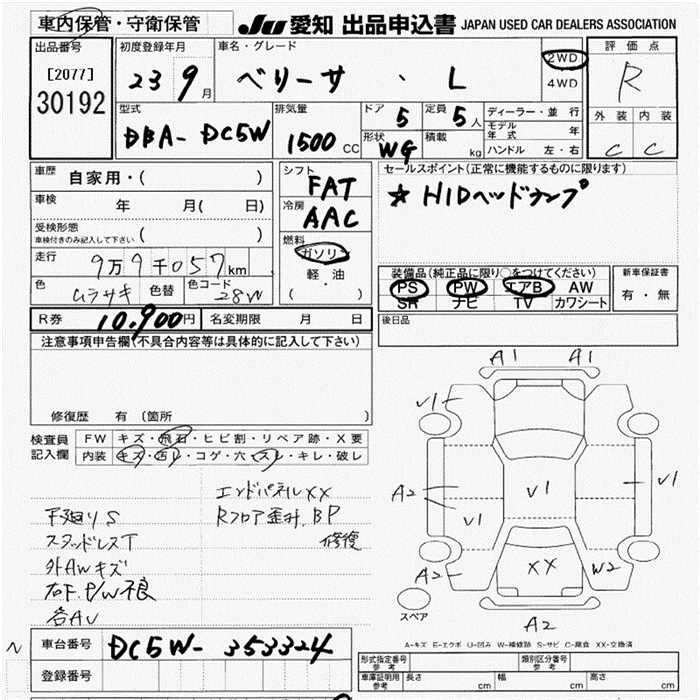 車内保管・守衛保管
JU 愛知 出品申込書 JAPAN USED CAR DEALERS ASSOCIATION
出品番号
[2077]
30192
初度登録年月
23 9月
車名・グレード
ベリーサ ・ L
2WD
4WD
評価点
R
外装 内装
C C
型式
DBA-DC5W
排気量
1500 CC
ドア 5
定員 5人
形状 WG
積載 kg
ディーラー・並行
モデル年式 年
ハンドル 左・右
車歴 自家用・( )
車検 年 月( 日)
受検形態
車検付きのみ記入して下さい ( )
走行 9万9千057km
色 ムラサキ 色替 色コード 28W
シフト
FAT
冷房
AAC
燃料
ガソリン
軽・油
( ・ )
セールスポイント(正常に機能するものに限ります)
☆HIDヘッドランプ
装備品(純正品に限り○をつけてください)
PS PW エアB AW
SR ナビ TV カワシート
新車保証書
有・無
R券 10,900円 名変期限 月 日
後日品
注意事項申告欄(不具合内容等は具体的に記入して下さい)
修復歴 有(箇所
検査員記入欄
FW キズ・飛石・ヒビ割・リペア跡・X要
内装 キズ・汚レ・コゲ・穴・スレ・キレ・破レ
エンドパネルXX
下廻りS
Rフロア歪み、BP
修復
スタッドレスT
外AWキズ
右下、P/W不良
各AU
A1 A1
V1
A2
V1
V1
V1
XX
A2
W2
A2
スペア
A-キズ E-エクボ U-凹み W-補修跡 S-サビ C-腐食 XX-交換済
N
車台番号 DC5W-353324
登録番号
形式指定番号 参考
類別区分番号 参考
車庫証明用 参考 長さ cm 幅 cm 高さ cm